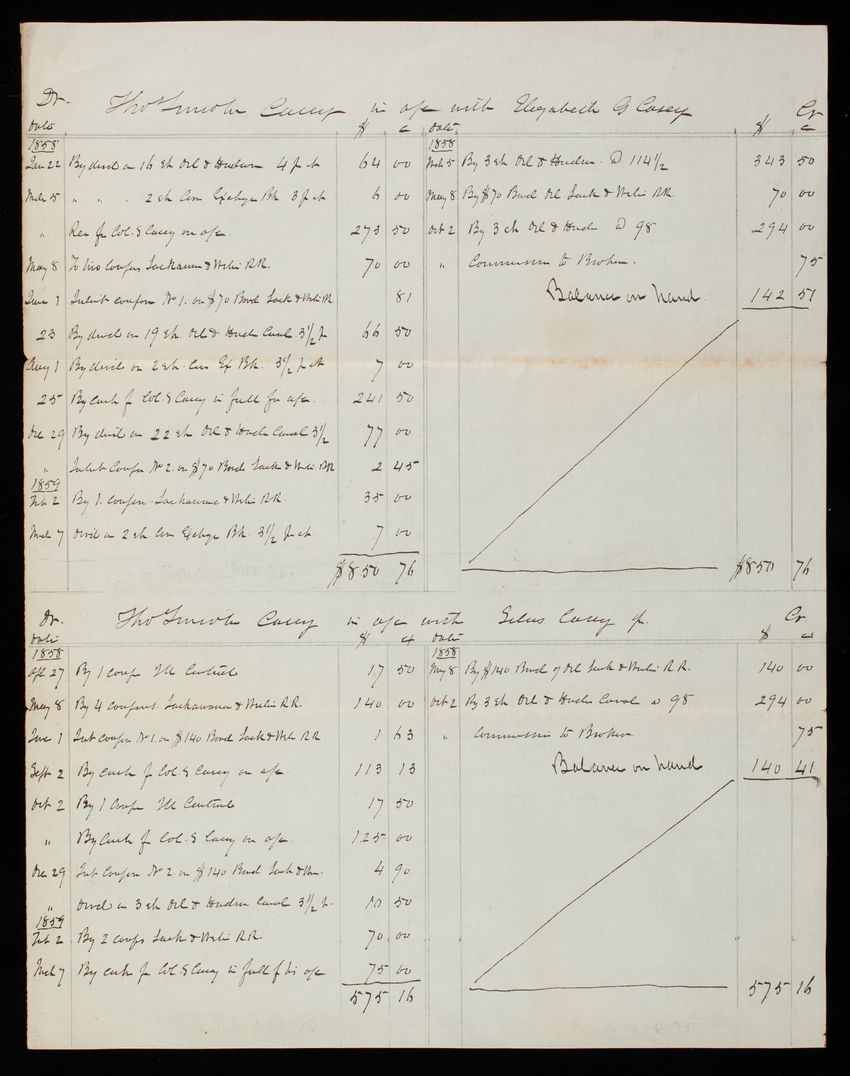 Dr. Thos Lincoln Casey in a/c with Elizabeth G Casey Cr
Date $ c Date $ c
1858 1858
Jan 22 By divid on 16 sh Del & Hudson 4 p ct 64 00 Mch 5 By 3 sh Del & Hudson @ 114½ 343 50
Mch 5 " " . 2 sh Am Exchge Bk 3 p ct. 6 00 May 8 By $70 Bond Del Lack & West RR. 70 00
" Rec fr Col. S Casey on a/c. 273 50 Oct 2 By 3 sh Del & Huds @ 98 294 00
May 8 To two Coupons Lackawan & West RR. 70 00 " Commission to Broker. 75
June 1 Intrst coupon No 1. on $70 Bond Lack & West R 81 Balance on hand. 142 51
23 By divid on 19 sh. Del & Huds Canal 3½ p 66 50
Aug 1 By divid on 2 sh. Am Ex Bk. 3½ p ct 7 00
25 By Cash f Col. S Casey in full for a/c. 241 50
Dec 29 By divid on 22 sh Del & Huds Canal 3½ 77 00
" Intrst Coupn No 2. on $70 Bond Lack & West RR 2 45
1859
Feb 2 By 1. coupon. Lackawana & West RR. 35 00
Mch 7 Divid on 2 sh. Am Exchge Bk. 3½ p ct. 7 00
$850 76 $850 76
Dr. Thos Lincoln Casey in a/c with Silas Casey Jr. Cr.
Date $ ct Date $ c
1858 1858
Apl 27 By 1 coup Ill Central 17 50 May 8 By $140 Bond of Del Lack & West R R. 140 00
May 8 By 4 coupons. Lackawana & West R R. 140 00 Oct 2 By 3 sh Del & Huds Canal @ 98 294 00
June 1 Int coupon No 1. on $140 Bond Lack & West R R 1 63 " Commission to Broker 75
Sept 2 By Cash f Col. S Casey on a/c 113 13 Balance on hand 140 41
Oct 2 By 1 Coup Ill Central 17 50
" By Cash f Col. S Casey on a/c. 125 00
Dec 29 Int Coupon No 2 on $140 Bond Lack & Wn. 4 90
" Divid on 3 sh Del & Hudson Canal 3½ p. 10 50
1859
Feb 2 By 2 coups Lack & West RR. 70 00
Mch 7 By cash f Col. S Casey in full f his a/c 75 00
575 16 575 16